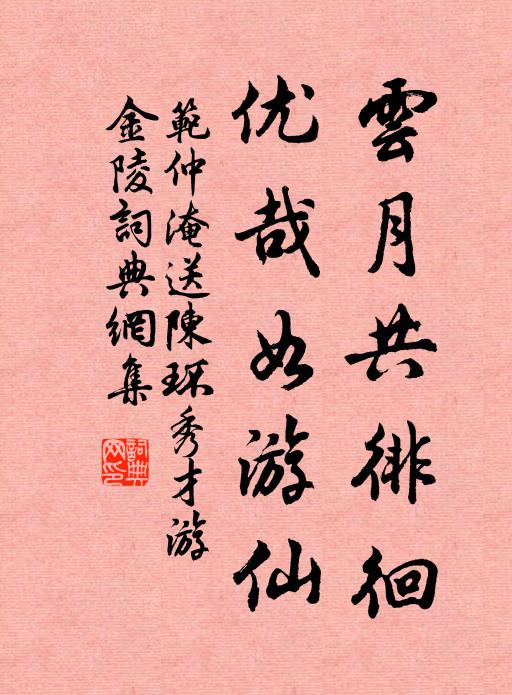 雲月共徘徊
优哉如游仙
範仲淹送陳环秀才游
金陵詞典網集
詞典网印